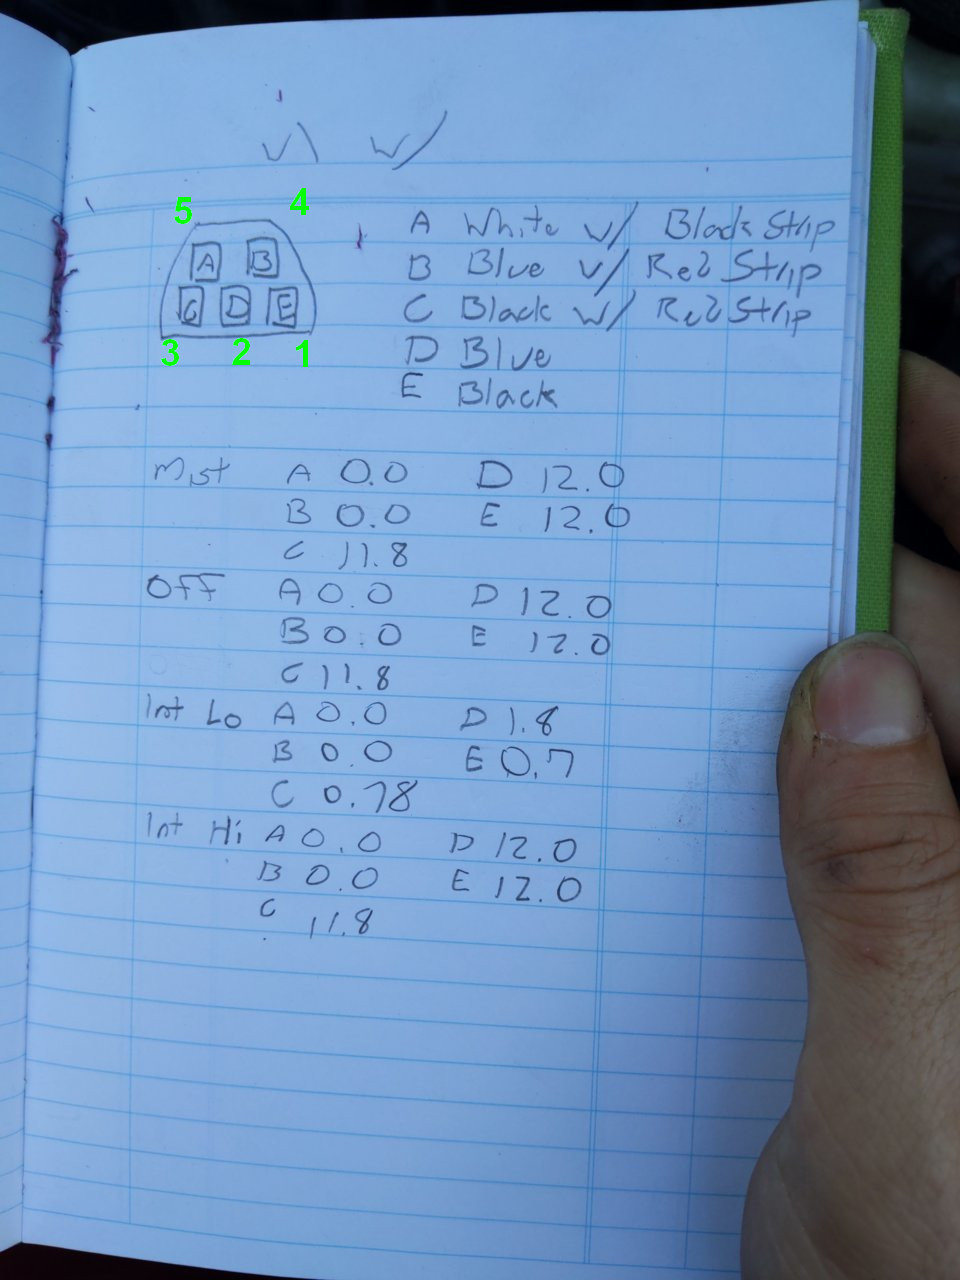 w\ w/
5 4
A White w/ Black Strip
A B
B Blue w/ Red Strip
C D E
C Black w/ Red Strip
3 2 1
D Blue
E Black
Mist A 0.0 D 12.0
B 0.0 E 12.0
C 11.8
OFF A 0.0 D 12.0
B 0.0 E 12.0
C 11.8
Int Lo A 0.0 D 1.8
B 0.0 E 0.7
C 0.78
Int Hi A 0.0 D 12.0
B 0.0 E 12.0
C 11.8